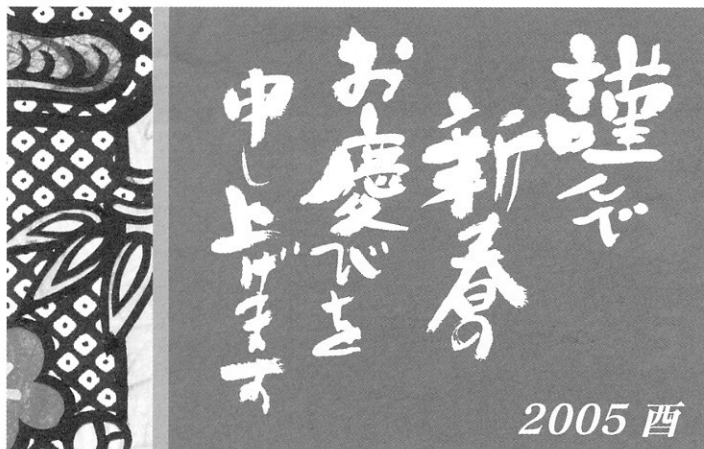 謹んで
新春の
お慶びを
申し上げます
2005 酉